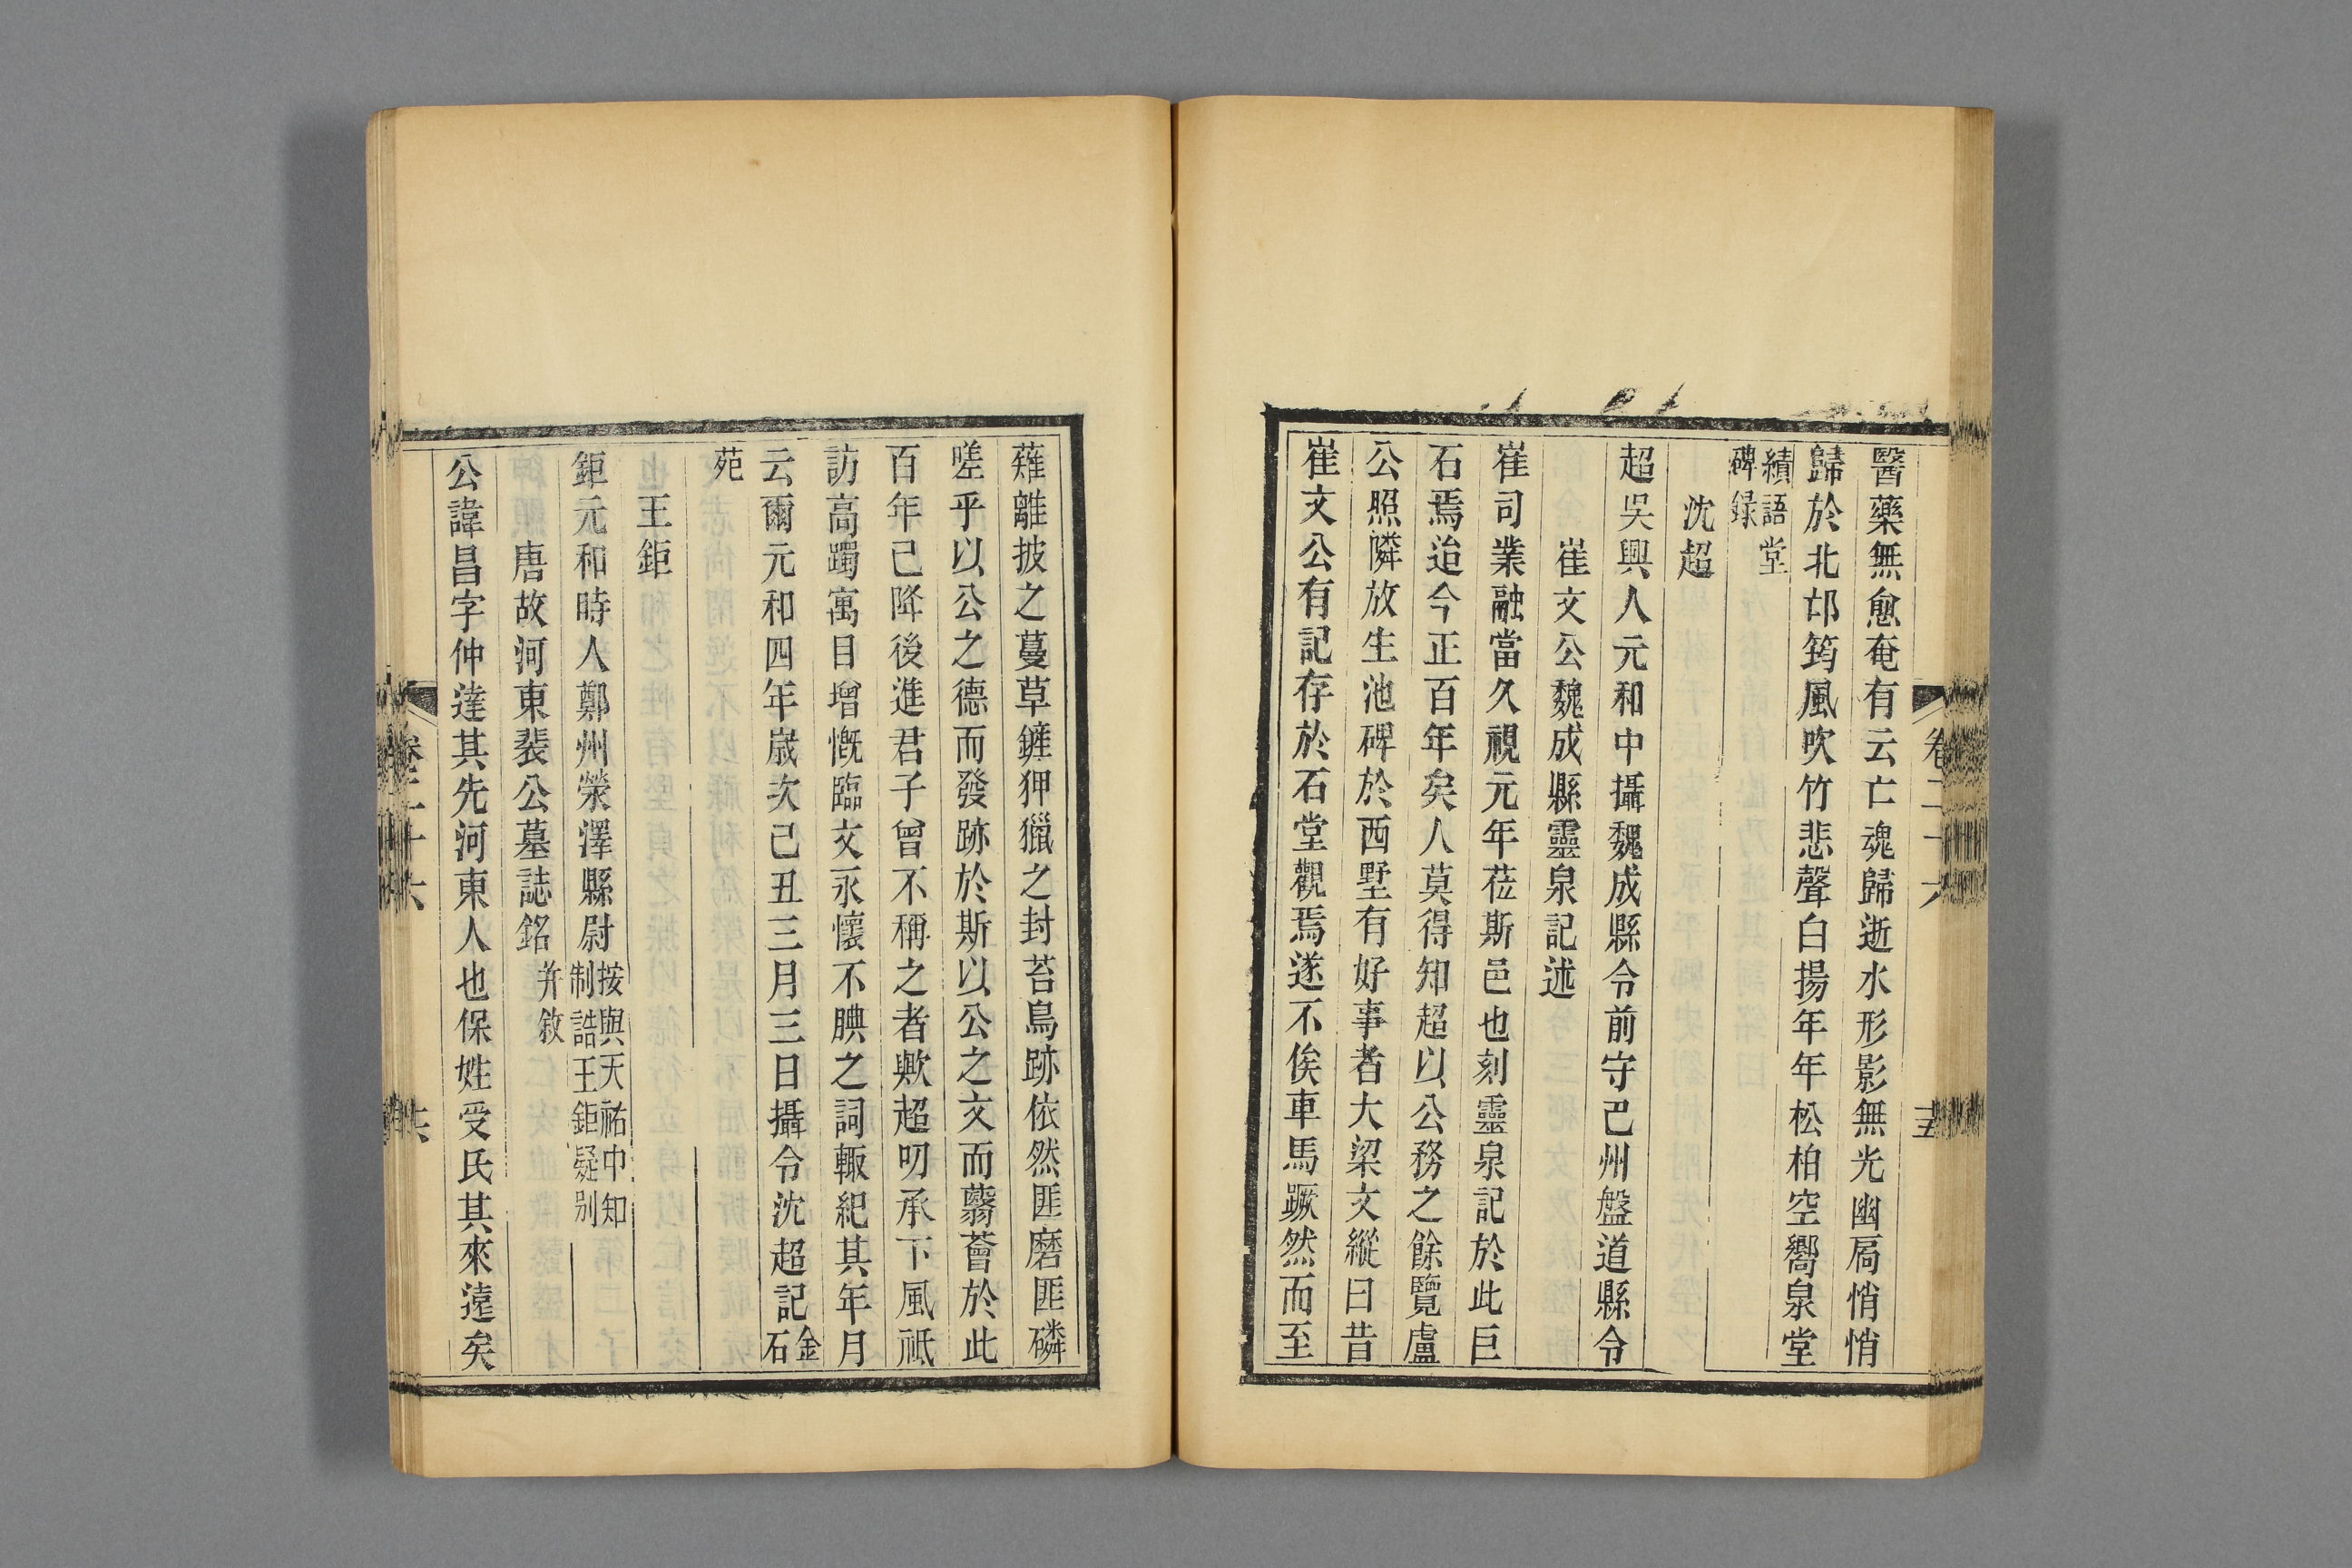 醫藥無愈奄有云亡魂歸逝水形影無光幽扃悄悄
歸於北邙筠風吹竹悲聲白揚年年松柏空嚮泉堂
績語堂
碑録
沈超
超吳興人元和中攝魏成縣令前守巴州盤道縣令
崔文公魏成縣靈泉記述
崔司業融當久視元年莅斯邑也刻靈泉記於此巨
石焉迨今正百年矣人莫得知超以公務之餘覽盧
公照隣放生池碑於西墅有好事者大梁文縱曰昔
崔文公有記存於石堂觀焉遂不俟車馬蹶然而至
卷二十六
薙離披之蔓草鏟狎獵之封苔鳥跡依然匪磨匪磷
嗟乎以公之德而發跡於斯以公之文而蘙薈於此
百年已降後進君子曾不稱之者歟超叨承下風祗
訪高躅寓目增慨臨文永懷不腆之詞輒紀其年月
云爾元和四年歲次己丑三月三日攝令沈超記金石
苑
王鉅
鉅元和時人鄭州滎澤縣尉
按與天祐中知
制誥王鉅疑别
唐故河東裴公墓誌銘并敘
公諱昌字仲達其先河東人也保姓受氏其來遠矣